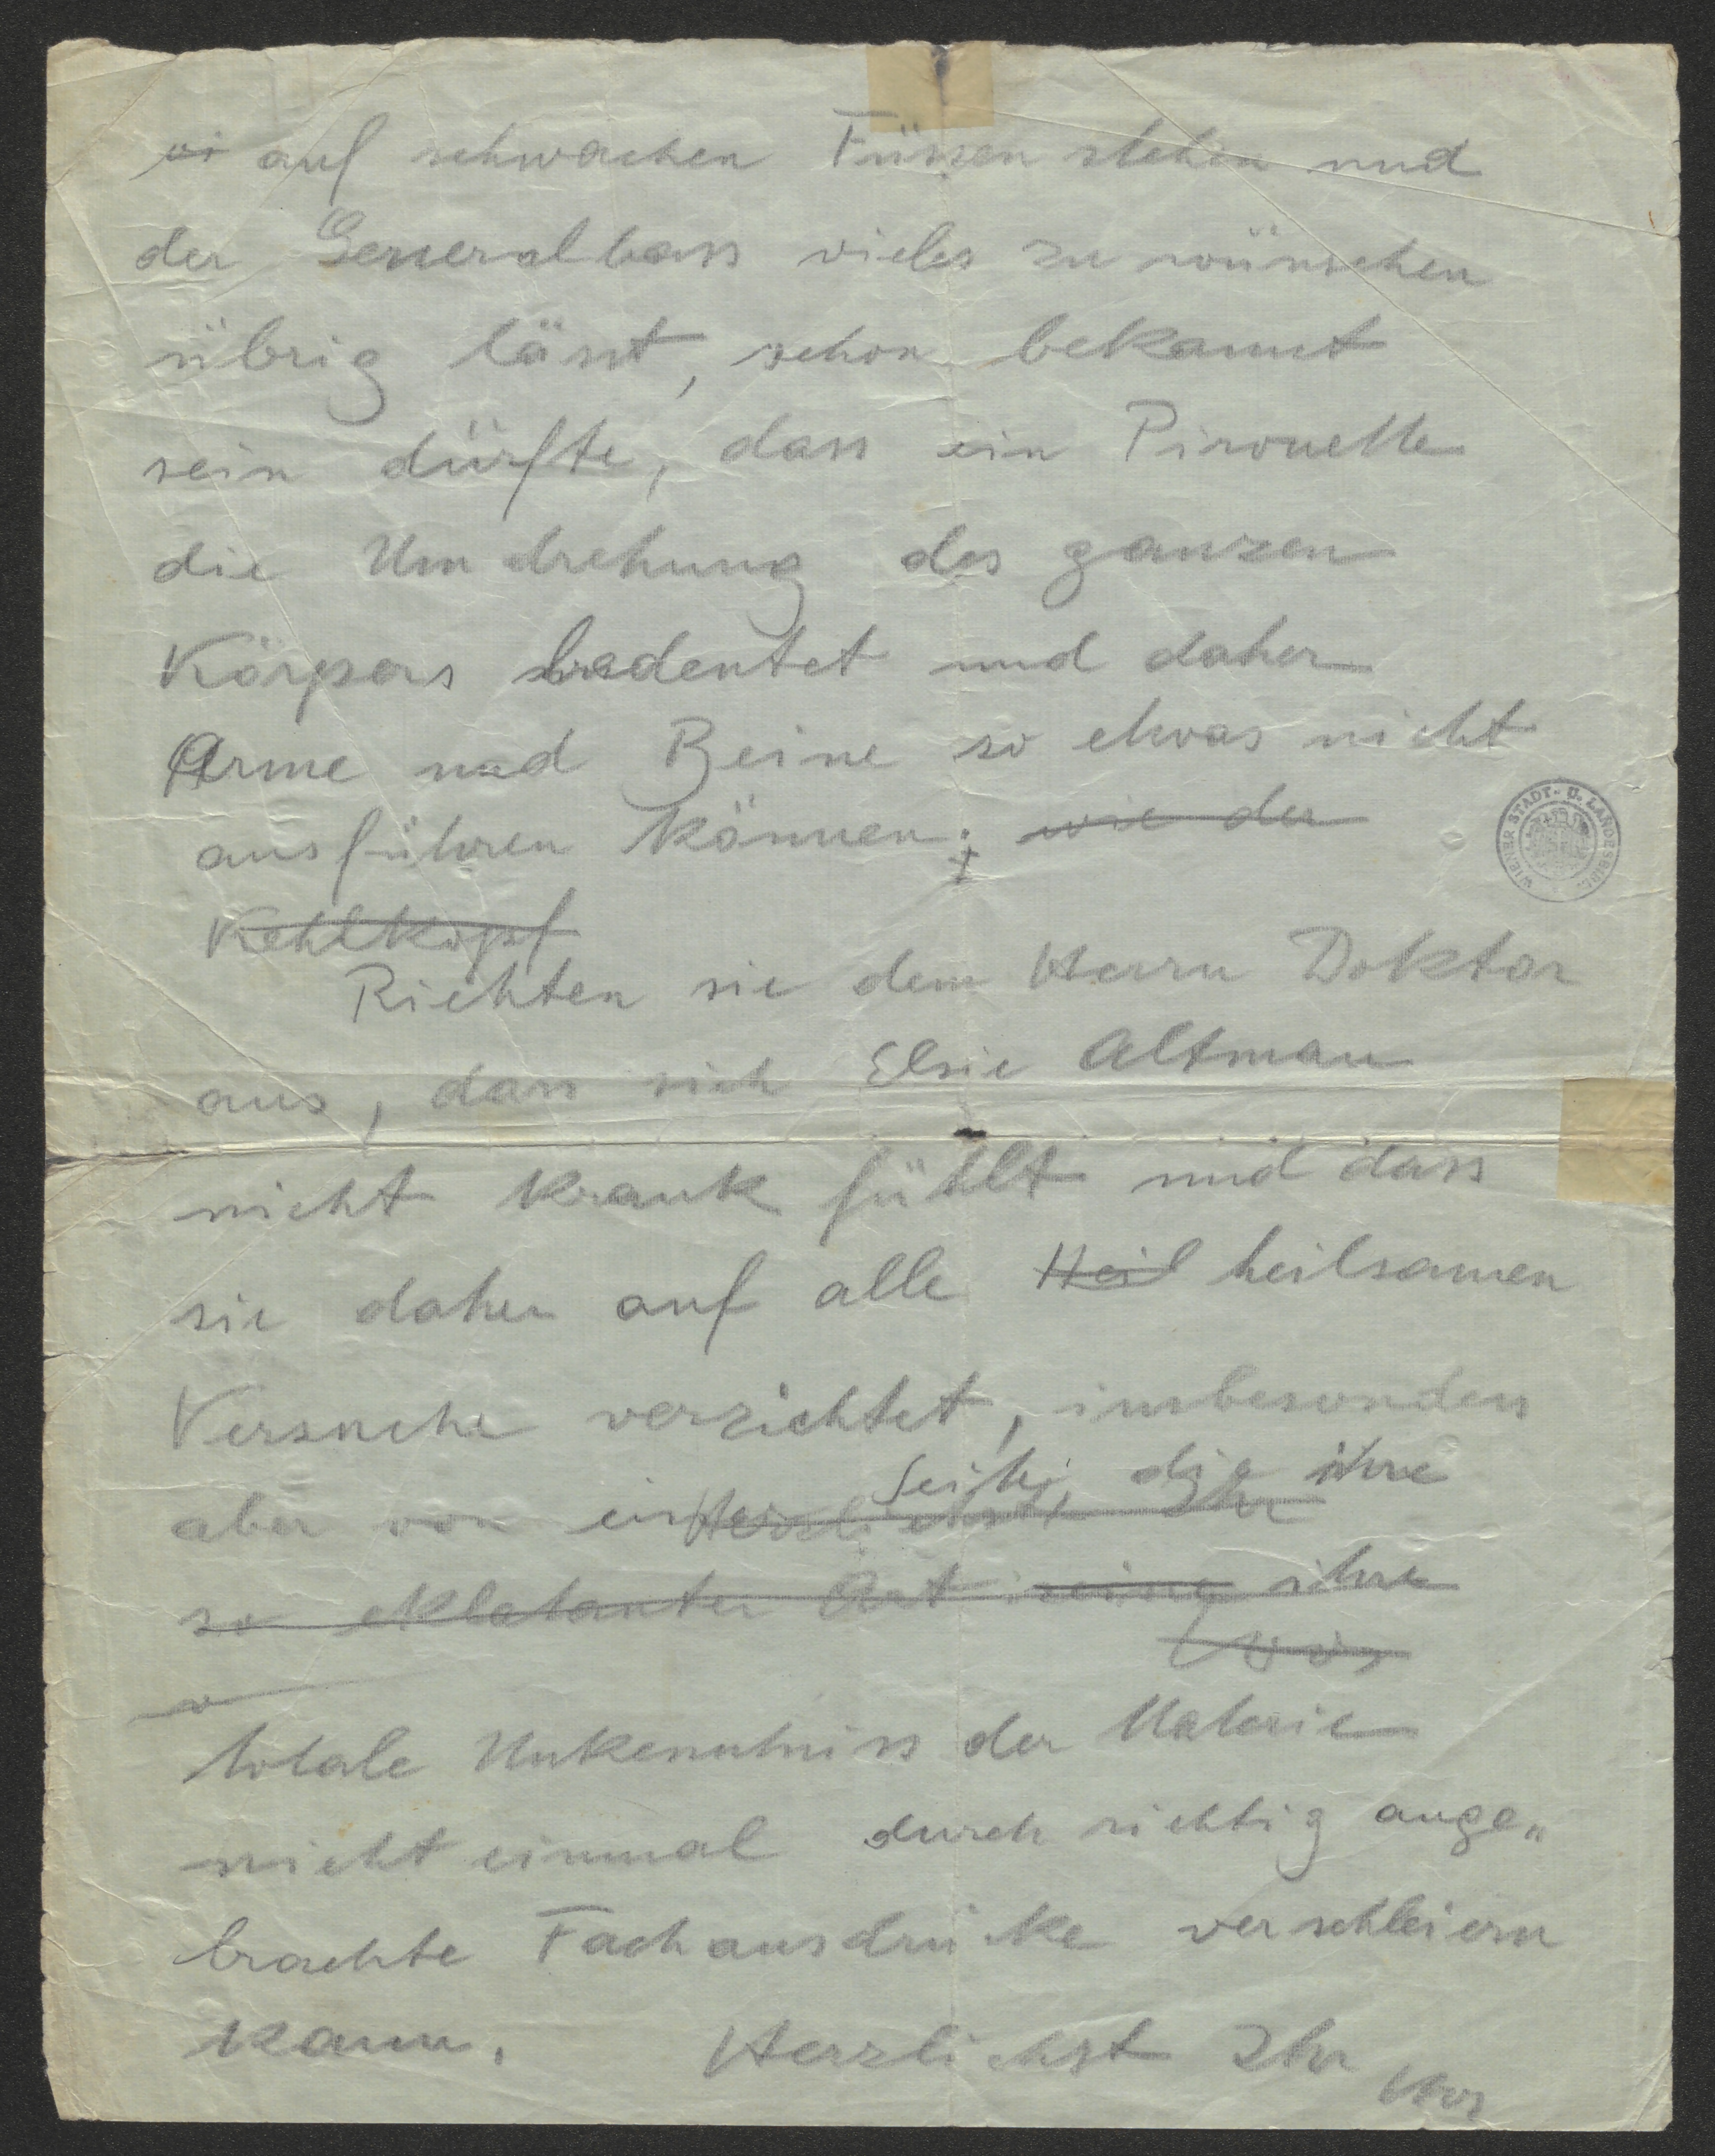 auf schwachen Füssen stehen und
der Generalbass vieles zu wünschen
übrig lässt, schon bekannt
sein dürfte, dass ein Pirouette
die Umdrehung des ganzen
Körpers bedeutet und daher
Arme und Beine so etwas nicht
ausführen können; wie der
Kehlkopf
Richten sie dem Herrn Doktor
aus, dass sich Elsie Altman
nicht krank fühlt und dass
sie daher auf alle Heil heilsamen
Versuche verzichtet, insbesonders
Seite, die ihre
aber von ein Herzlichst Ihr
so eklatanter Art seine ihre
Loos
totale Unkenntniss der Materie
nicht einmal durch richtig ange„
brachte Fachausdrücke verschleiern
kann. Herzlichst Ihr
WIENER STADT- U. LANDESBIBL.